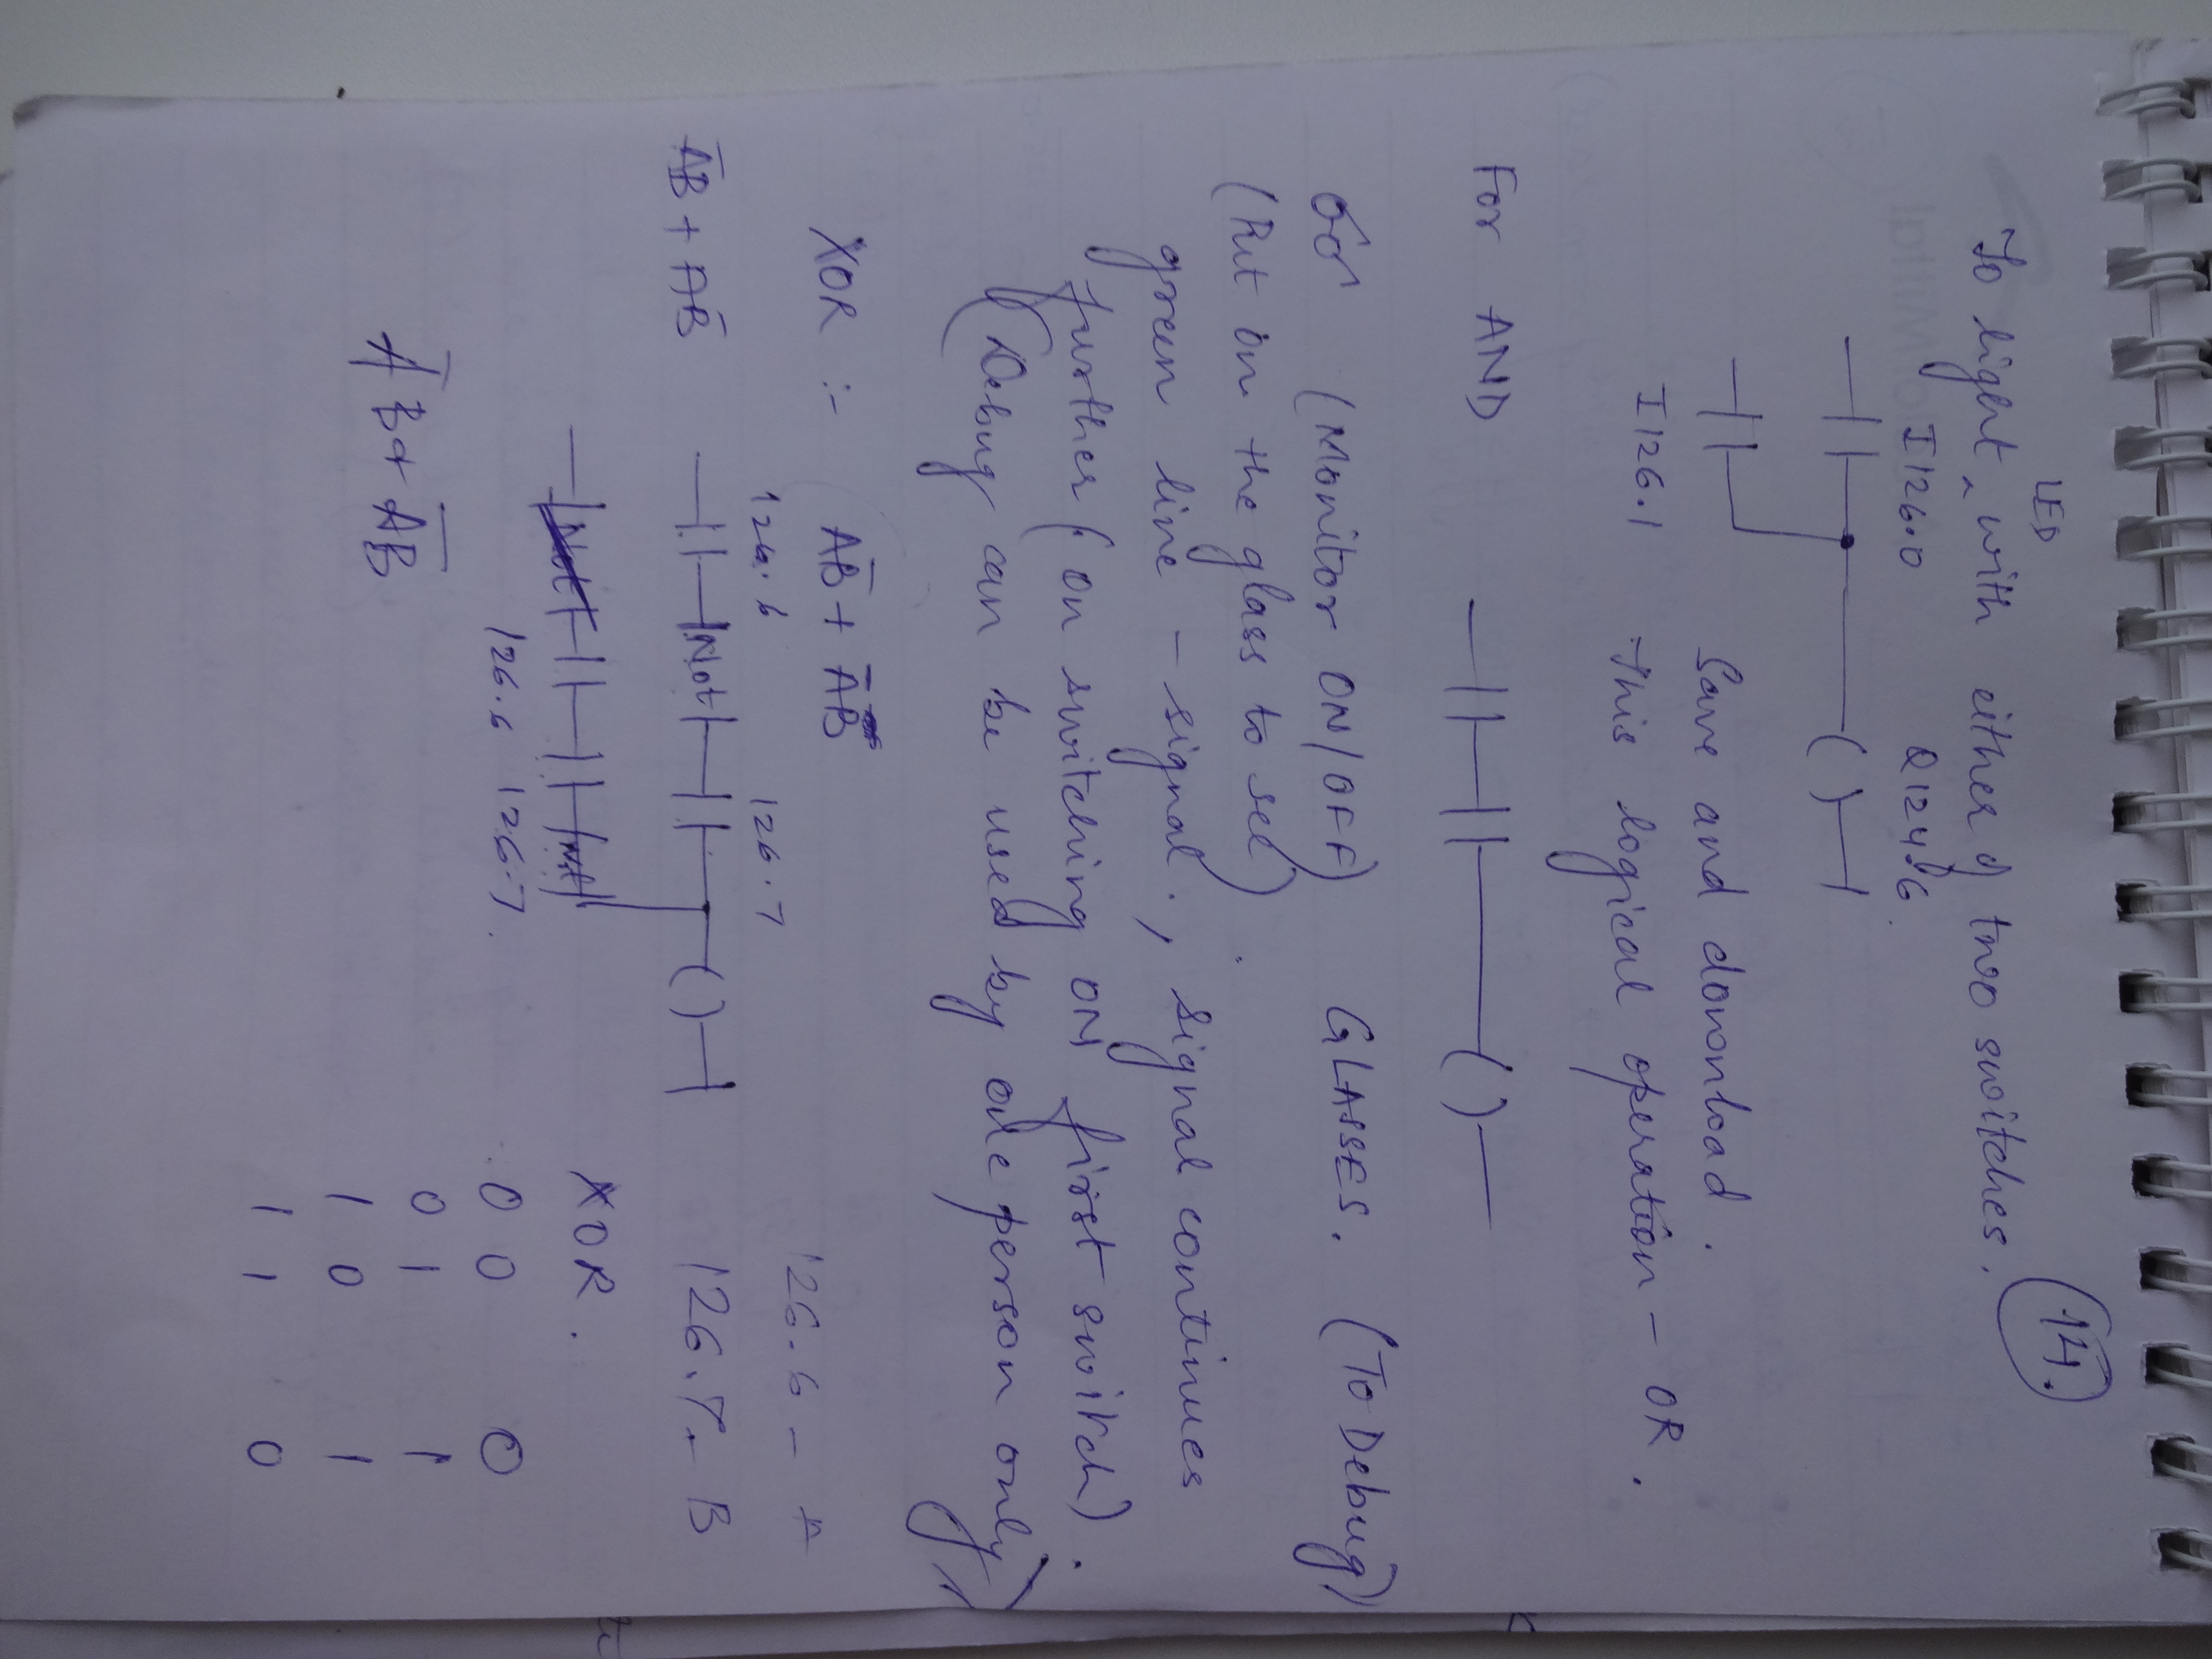 14.
To light LED with either of two switches.
I126.0 Q124.6
I126.1
Save and download.
This logical operation - OR.
For AND
(Monitor ON/OFF) GLASSES. (To Debug)
(Put on the glass to see)
green line - signal., signal continues
further (on switching ON first switch).
(Debug can be used by one person only)
XOR :- AB̅ + A̅B
126.6 - A
126.6 126.7
126.7 - B
A̅B + AB̅
Not
Not
Not
126.6 126.7.
XOR.
0 0 0
0 1 1
1 0 1
1 1 0
A̅B + AB̅